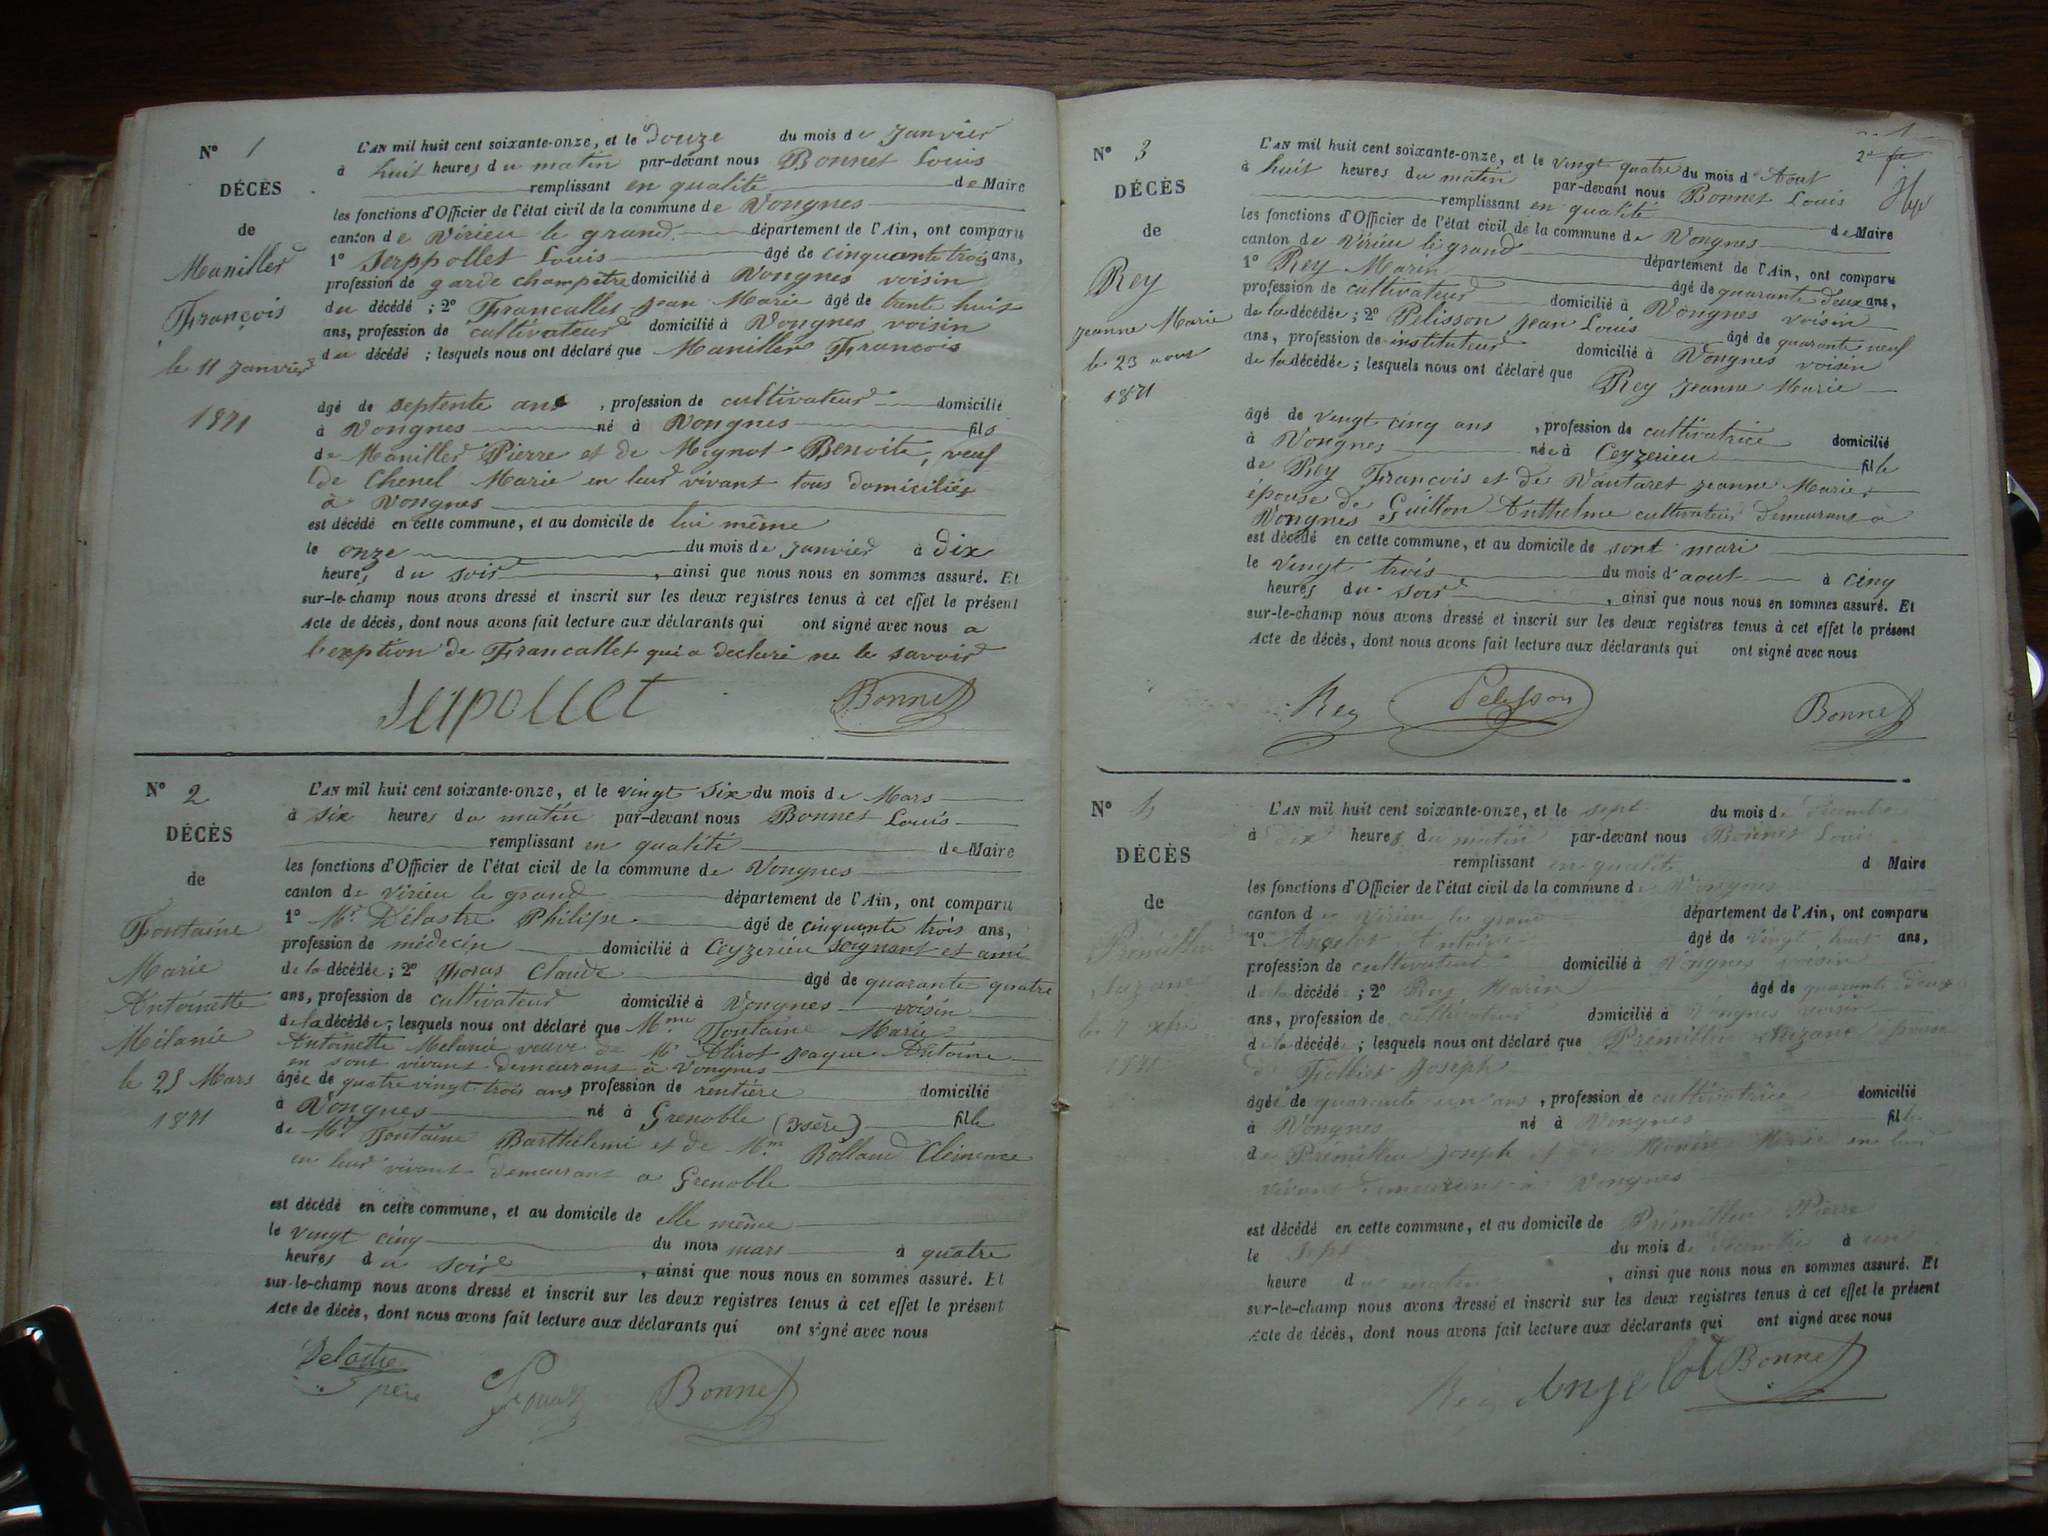 N° 1
DÉCÈS
de
Maniller
François
le 11 Janvier
1871
L'AN mil huit cent soixante-onze, et le Douze du mois de Janvier
à huit heures du matin par-devant nous Bonnet Louis
remplissant en qualité de Maire
les fonctions d'Officier de l'état civil de la commune de Vongnes
canton de Virieu le grand département de l'Ain, ont comparu
1° Serppollet Louis âgé de cinquante trois ans,
profession de garde champêtre domicilié à Vongnes voisin
du décédé ; 2° Francallet Jean Marie âgé de trente huit
ans, profession de cultivateur domicilié à Vongnes voisin
du décédé ; lesquels nous ont déclaré que Maniller François
âgé de septente ans, profession de cultivateur domicilié
à Vongnes né à Vongnes fils
de Maniller Pierre et de Mignot Benoite, veuf
de Chenel Marie en leur vivant tous domiciliés
à Vongnes
est décédé en cette commune, et au domicile de lui même
le onze du mois de Janvier à dix
heures du soir, ainsi que nous nous en sommes assuré. Et
sur-le-champ nous avons dressé et inscrit sur les deux registres tenus à cet effet le présent
Acte de décès, dont nous avons fait lecture aux déclarants qui ont signé avec nous a
l'exption de Francallet qui a declaré ne le savoir
Serpollet Bonnet
N° 2
DÉCÈS
de
Fontaine
Marie
Antoinette
Mélanie
le 25 Mars
1871
L'AN mil huit cent soixante-onze, et le vingt six du mois de Mars
à six heures du matin par-devant nous Bonnet Louis
remplissant en qualité de Maire
les fonctions d'Officier de l'état civil de la commune de Vongnes
canton de Virieu le grand département de l'Ain, ont comparu
1° Mr Délastre Philipe âgé de cinquante trois ans,
profession de médecin domicilié à Ceyzerieu soignant et ami
de la décédée ; 2° Foras Claude âgé de quarante quatre
ans, profession de cultivateur domicilié à Vongnes voisin
de la décédée ; lesquels nous ont déclaré que Mme Fontaine Marie
Antoinette Melanie veuve de Mr Jaque Antoine
en sont vivant demeurant à Vongnes
âgée de quatre vingt trois ans profession de rentière domicilié
à Vongnes né à Grenoble (Isère) fille
de Mr Fontaine Barthélemi et de Mme Rolland Clémence
en leur vivant demeurant a Grenoble
est décédé en cette commune, et au domicile de elle même
le vingt cinq du mois mars à quatre
heures du soir, ainsi que nous nous en sommes assuré. Et
sur-le-champ nous avons dressé et inscrit sur les deux registres tenus à cet effet le présent
Acte de décès, dont nous avons fait lecture aux déclarants qui ont signé avec nous
Delastre père Bonnet
2e
N° 3
DÉCÈS
de
Rey
Jeanne Marie
le 23 aout
1871
L'AN mil huit cent soixante-onze, et le vingt quatre du mois d'Aout
à huit heures du matin par-devant nous Bonnet Louis
remplissant en qualité de Maire
les fonctions d'Officier de l'état civil de la commune de Vongnes
canton de Virieu le grand département de l'Ain, ont comparu
1° Rey Marin âgé de quarante deux ans,
profession de cultivateur domicilié à Vongnes voisin
de la décédée ; 2° Pelisson Jean Louis âgé de quarante neuf
ans, profession de instituteur domicilié à Vongnes voisin
de la décédée ; lesquels nous ont déclaré que Rey Jeanne Marie
âgé de vingt cinq ans, profession de cultivatrice domicilié
à Vongnes née à Ceyzerieu fille
de Rey François et de Vautaret Jeanne Marie
épouse de Guillon Anthelme cultivateur demeurant a
Vongnes
est décédé en cette commune, et au domicile de sont mari
le vingt trois du mois d'aout à cinq
heures du soir, ainsi que nous nous en sommes assuré. Et
sur-le-champ nous avons dressé et inscrit sur les deux registres tenus à cet effet le présent
Acte de décès, dont nous avons fait lecture aux déclarants qui ont signé avec nous
Rey Pelisson Bonnet
N° 4
DÉCÈS
de
Prémillieu
Suzane
le 7 xbre
1871
L'AN mil huit cent soixante-onze, et le sept du mois de Décembre
à dix heures du matin par-devant nous Bonnet Louis
remplissant en qualité d Maire
les fonctions d'Officier de l'état civil de la commune de Vongnes
canton de Virieu le grand département de l'Ain, ont comparu
1° Angelot Antoine âgé de vingt huit ans,
profession de cultivateur domicilié à Vongnes voisin
de la décédée ; 2° Rey Marin âgé de quarante deux
ans, profession de cultivateur domicilié à Vongnes voisin
de la décédée ; lesquels nous ont déclaré que Prémillieu Suzane épouse
de Joseph
âgée de quarante un ans, profession de cultivatrice domicilié
à Vongnes né à Vongnes fille
de Prémillieu Joseph et de Monin Marie en leur
vivant demeurant à Vongnes
est décédé en cette commune, et au domicile de Prémillieu Pierre
le sept du mois de Décembre à un
heure du matin, ainsi que nous nous en sommes assuré. Et
sur-le-champ nous avons dressé et inscrit sur les deux registres tenus à cet effet le présent
Acte de décès, dont nous avons fait lecture aux déclarants qui ont signé avec nous
Rey Angelot Bonnet